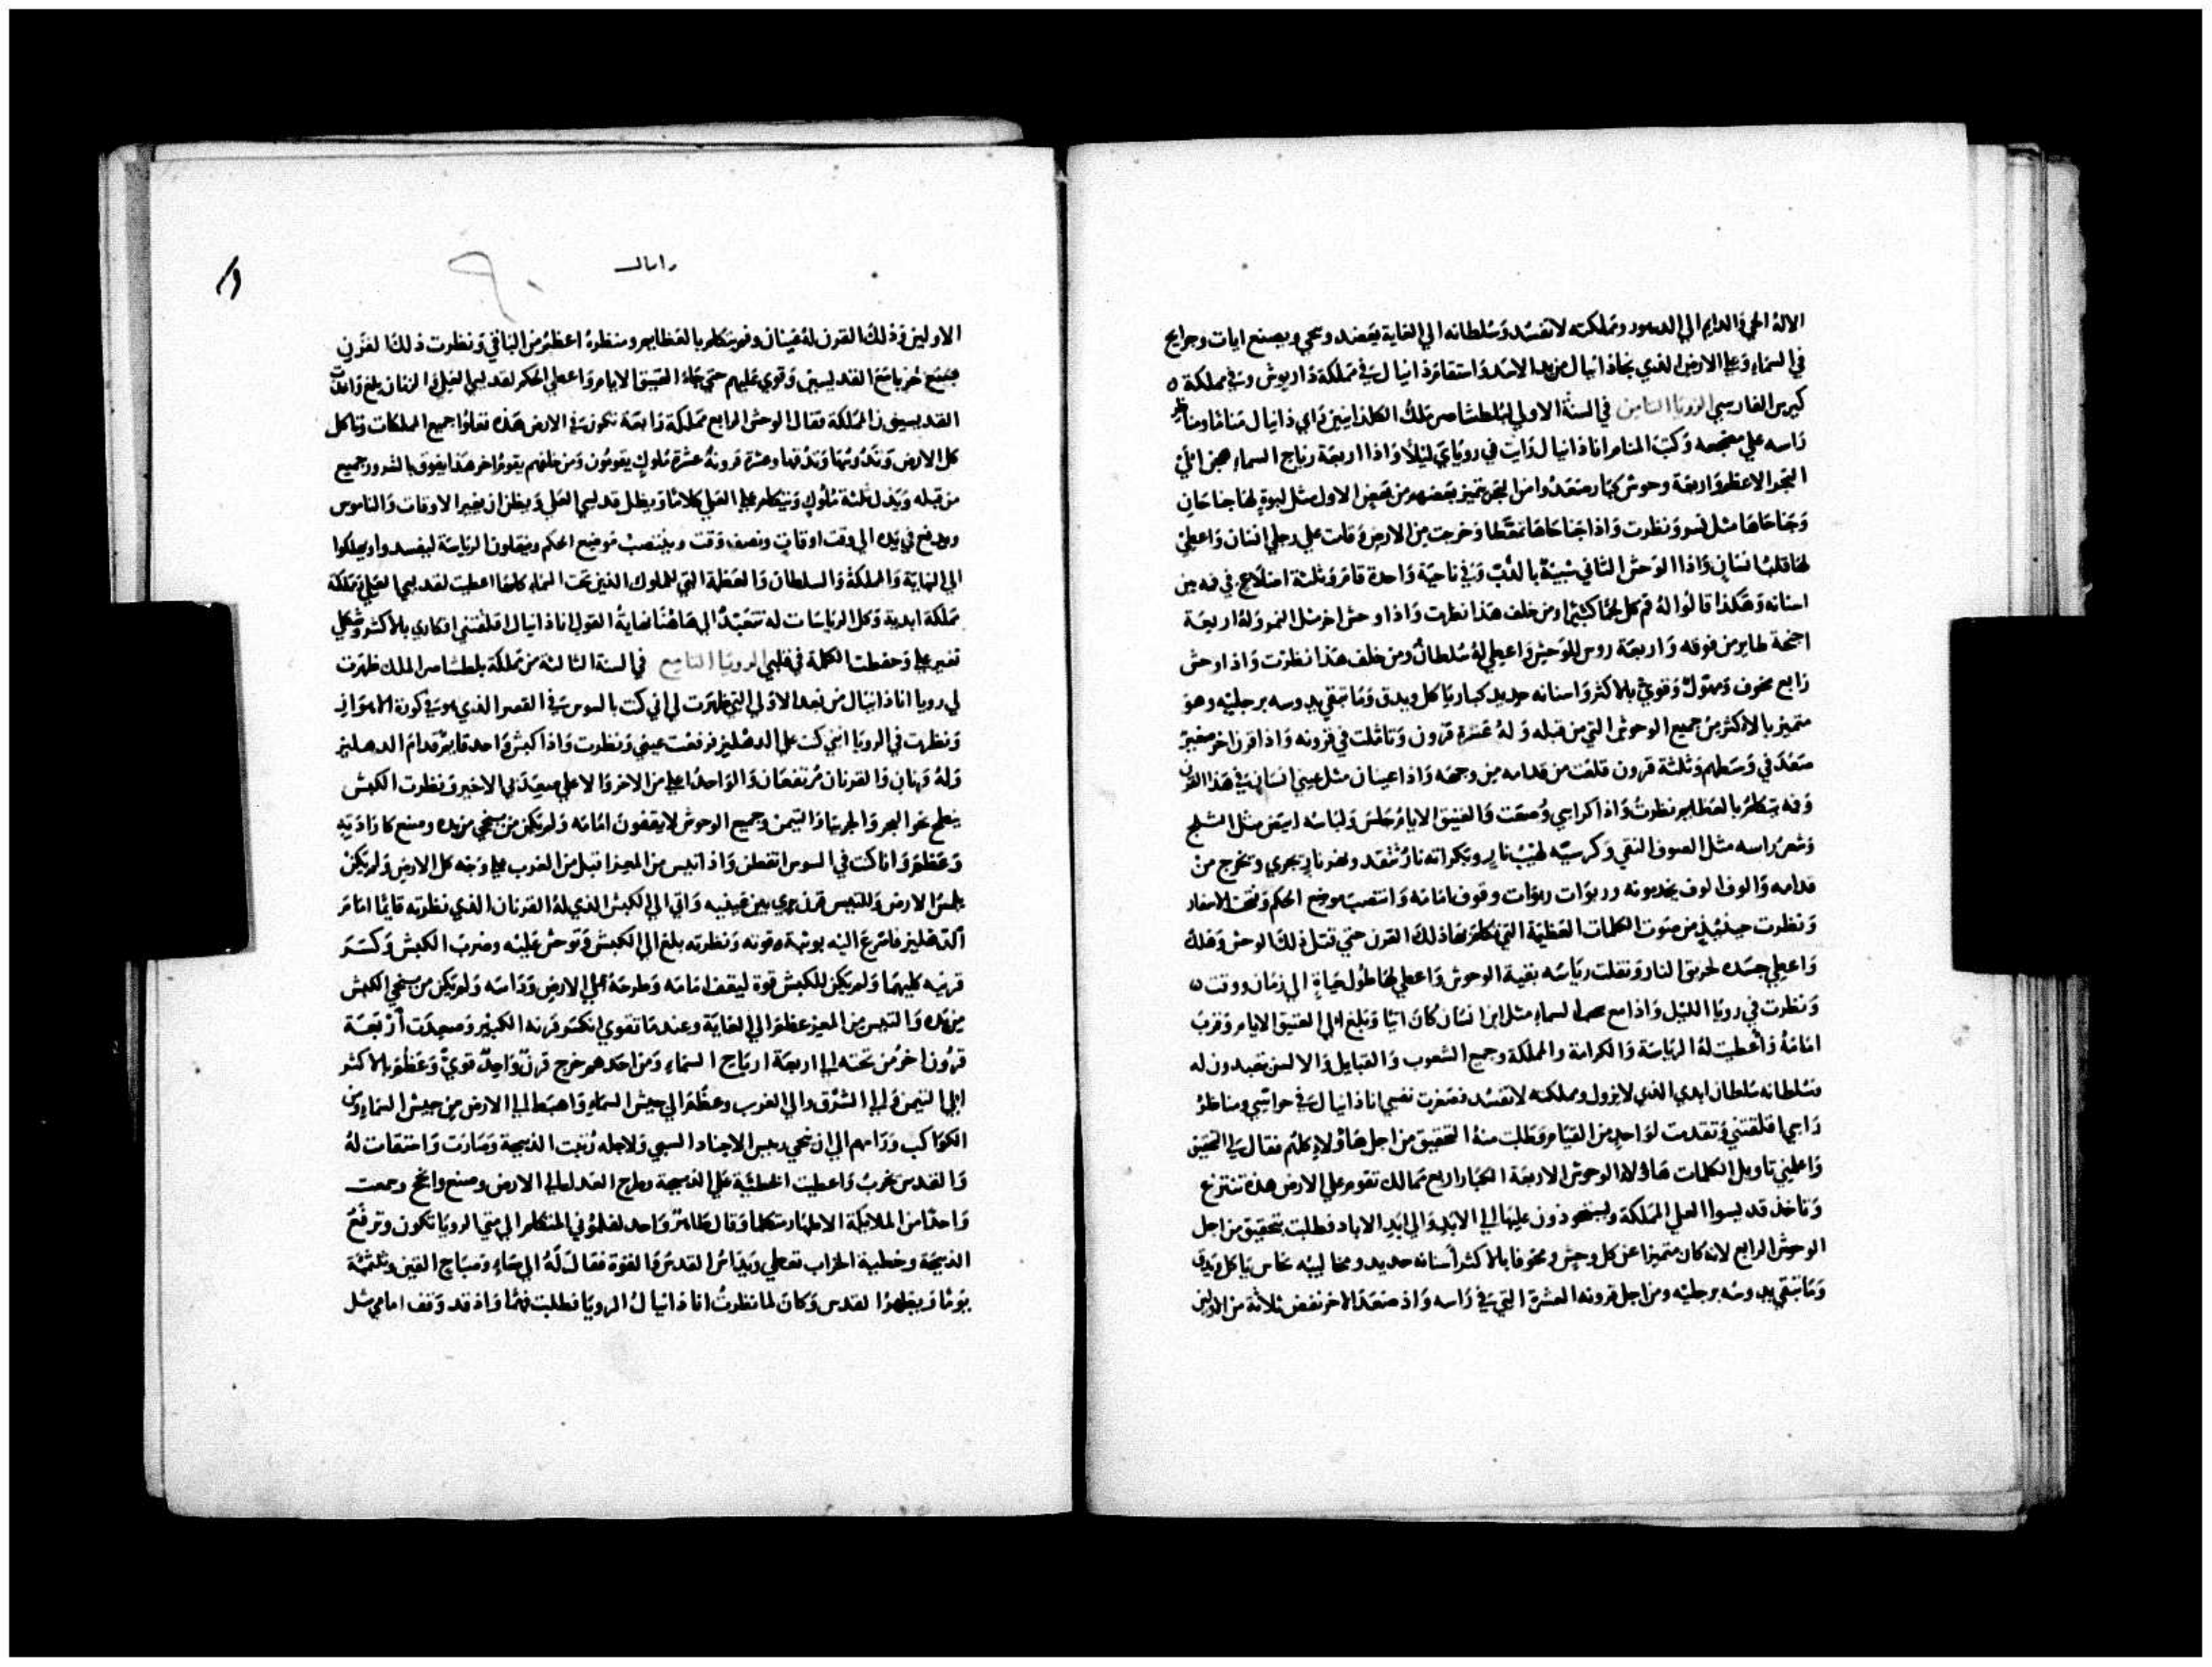 الاله الحي والدايم الي الدهور ومملكته لا تفسد وسلطانه الي الغاية يعضد وينجي ويصنع ايات وجرايح
في السماء وعلي الارض الذي نجا دانيال من يد الاسد واستقام دانيال في مملكة داريوش وفي مملكة ه
كيرس الفارسي الرويا الثامن في السنة الاولي لبلطشاصر ملك الكلدانيين راي دانيال مناما ومناظر
راسه علي مضجعه وكتب المنام انا دانيال رايت في روياي ليلا واذا اربعة رياح السماء هبن الي
البحر الاعظم واربعة وحوش كبار صعدوا من البحر تميز بعضهم من بعض الاول مثل لبوة لها جناحان
وجناحاها مثل نسر ونظرت واذا جناحاها تمعطا وخرجت من الارض وقامت علي رجلي انسان واعطي
لها قلب انسان واذا الوحش الثاني شبية بالدب وفي ناحية واحدة قام وثلثة اضلاع في فه من
اسنانه وهكذا قالوا له قم كل لحما كثيرا ومن خلف هذا نظرت واذا وحش اخر مثل النمر وله اربعة
اجنحة طاير من فوقه واربعة روس للوحش واعطي له سلطان ومن خلف هذا نظرت واذا وحش
رابع مخوف ومهول وقوي بالاكثر واسنانه حديد كبار ياكل ويدق وما تبقي يدوسه برجليه وهو
متميز بالاكثر من جميع الوحوش التي من قبله وله عشرة قرون وتاملت في قرونه واذا قرن اخر صغير
صعد في وسطهم وثلثة قرون قلعت من قدامه من وجهه واذا عينان مثل عيني انسان في هذا القرن
وفه يتكلم بالعظايم نظرت واذا كراسي وضعت والعتيق الايام جلس ولباسه ابيض مثل الثلج
وشعر راسه مثل الصوف النقي وكرسيه لهيب نار وبكراته نار تتقد ونهر نار يجري ويخرج من
قدامه والوف الوف يخدمونه وربوات ربوات وقوف امامه وانتصب موضع الحكم وفتحت الاسفار
ونظرت حينيذ من صوت الكلمات العظيمة التي تكلم بها ذلك القرن حتي قتل ذلك الوحش وهلك
واعطي جسده لحريق النار ونقلت رياسه بقية الوحوش واعطي لها طول حياة الي زمان ووقت ه
ونظرت في رويا الليل واذا مع سحاب السماء مثل ابن انسان كان اتيا وبلغ الي العتيق الايام وقرب
امامه واعطيت له الرياسة والكرامة والمملكة وجميع الشعوب والقبايل والالسن تعبدون له
سلطانه سلطان ابدي الذي لا يزول ومملكته لا تفسد فصغرت نفسي انا دانيال في حواسي ومناظر
راسي اقلقتني وتقدمت لواحد من القيام وطلبت منه التحقيق من اجل هاولاء كلهم فقال لي التحقيق
واعلمني تاويل الكلمات هاولاء الوحوش الاربعة الكبار اربع ممالك تقوم علي الارض هذه تنتزع
وتاخذ قديسوا العلي المملكة ويستحوذون عليها الي الابد والي ابد الاباد فطلبت بتحقيق من اجل
الوحش الرابع لانه كان متميزا عن كل وحش ومخوفا بالاكثر اسنانه حديد ومخاليبه نحاس ياكل ويدق
وما تبقي يدوسه برجليه ومن اجل قرونه العشرة التي في راسه واذ صعد الاخر نفض ثلاثة من الاولين
دانيال
الاولين وذلك القرن له عينان وفم يتكلم بالعظايم ومنظره اعظم من الباقي ونظرت ذلك القرن
يصنع حربا مع القديسين وقوي عليهم حتي جاء العتيق الايام واعطي الحكم لقديسي العلي والزمان بلغ
القديسين المملكة فقال الوحش الرابع مملكة رابعة تكون في الارض هذه تعلوا جميع الملكات وتاكل
كل الارض وتدوسها وتدقها وعشرة قرونه عشرة ملوك يقومون ومن خلفهم يقوم اخر هذا يفوق بالشرور جميع
من قبله ويذل ثلثة ملوك ويتكلم علي العلي كلاما ويظل قديسي العلي ويظن ان يغير الاوقات والناموس
ويدفع في يده الي وقت اوقات ونصف وقت وينتصب موضع الحكم وينقلون الرياسة ليفسدوا ويهلكوا
الي النهاية والمملكة والسلطان والعظمة التي للملوك الذين تحت السماء كلها اعطيت لقديسي العلي ومملكته
مملكة ابدية وكل الرياسات له تتعبد الي هاهنا نهاية القول انا دانيال اقلقتني افكاري بالاكثر وشكلي
تغير علي وحفظت الكلمة في قلبي الرويا التاسع في السنة الثالثة من مملكة بلطشاصر الملك ظهرت
لي رويا انا دانيال من بعد الاولي التي ظهرت لي اني كنت بالسوس في القصر الذي هو في كورة الاهواز
ونظرت في الرويا انني كنت علي الدهليز فرفعت عيني ونظرت واذا كبش واحد قايم قدام الدهليز
وله قرنان والقرنان مرتفعان والواحد اعلي من الاخر والاعلي صعد في الاخير ونظرت الكبش
ينطح نحو البحر والجربيا والتيمن وجميع الوحوش لا يقفون امامه ولم يكن من ينجي من يده وصنع كارادته
وعظم وانا كنت في السوس اتفطن واذا تيس من المعز اقبل من الغرب علي وجه كل الارض ولم يكن
يلمس الارض وللتيس قرن يري بين عينيه واتي الي الكبش الذي له القرنان الذي نظرته قايما امام
الدهليز فاسرع اليه بوثبة وقوته ونظرته بلغ الي الكبش وتوحش عليه وضرب الكبش وكسر
قرنيه كليهما ولم يكن للكبش قوة ليقف امامه وطرحه علي الارض وداسه ولم يكن من ينجي الكبش
من يده والتيس من المعز عظم الي الغاية وعندما تقوي انكسر قرنه الكبير وصعدت اربعة
قرون اخر من تحته الي اربعة ارياح السماء ومن احدهم خرج قرن واحد قوي وعظم بالاكثر
الي التيمن والي الشرق والي الغرب وعظم الي جيش السماء واهبط الي الارض من جيش السماء ومن
الكواكب وداسهم الي ان ينجي رييس الاجناد السبي ولاجله رتبت الذبيحة وصارت واختقات له
والقدس يخرب واعطيت الخطية علي الذبيحة وطرح العدل الي الارض وصنع وانجح وسمعت
واحدا من الملايكة الاطهار متكلما وقال طاهر واحد لفلموني المتكلم الي متي الرويا تكون وترفع
الذبيحة وخطية الخراب تعطي ويداس القدس والقوة فقال له الي مساء وصباح الفين وثلثمية
يوما ويطهر القدس وكان لما نظرت انا دانيال الرويا فطلبت فهما واذ قد وقف امامي مثل